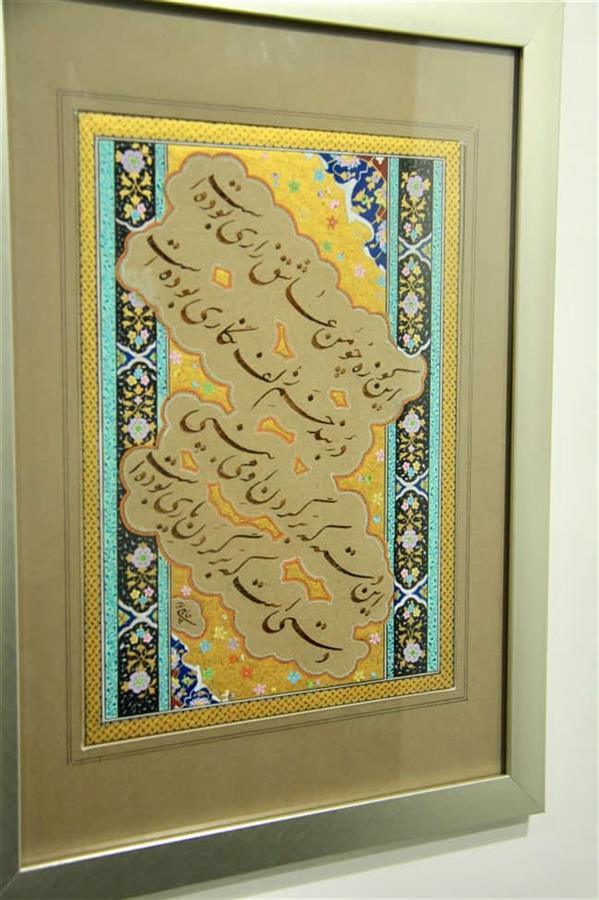 این کوزه چو من عاشق زاری بوده است
در بند خم زلف نگاری بوده است
این دسته که بر گردن او می بینی
دستی است که بر گردن یاری بوده است